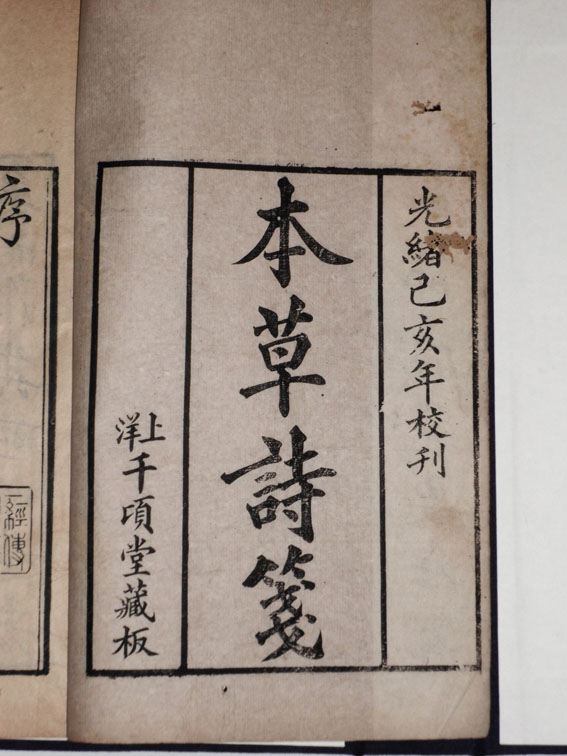 光緒己亥年校刊
本草詩箋
上洋千頃堂藏板
序
經傳